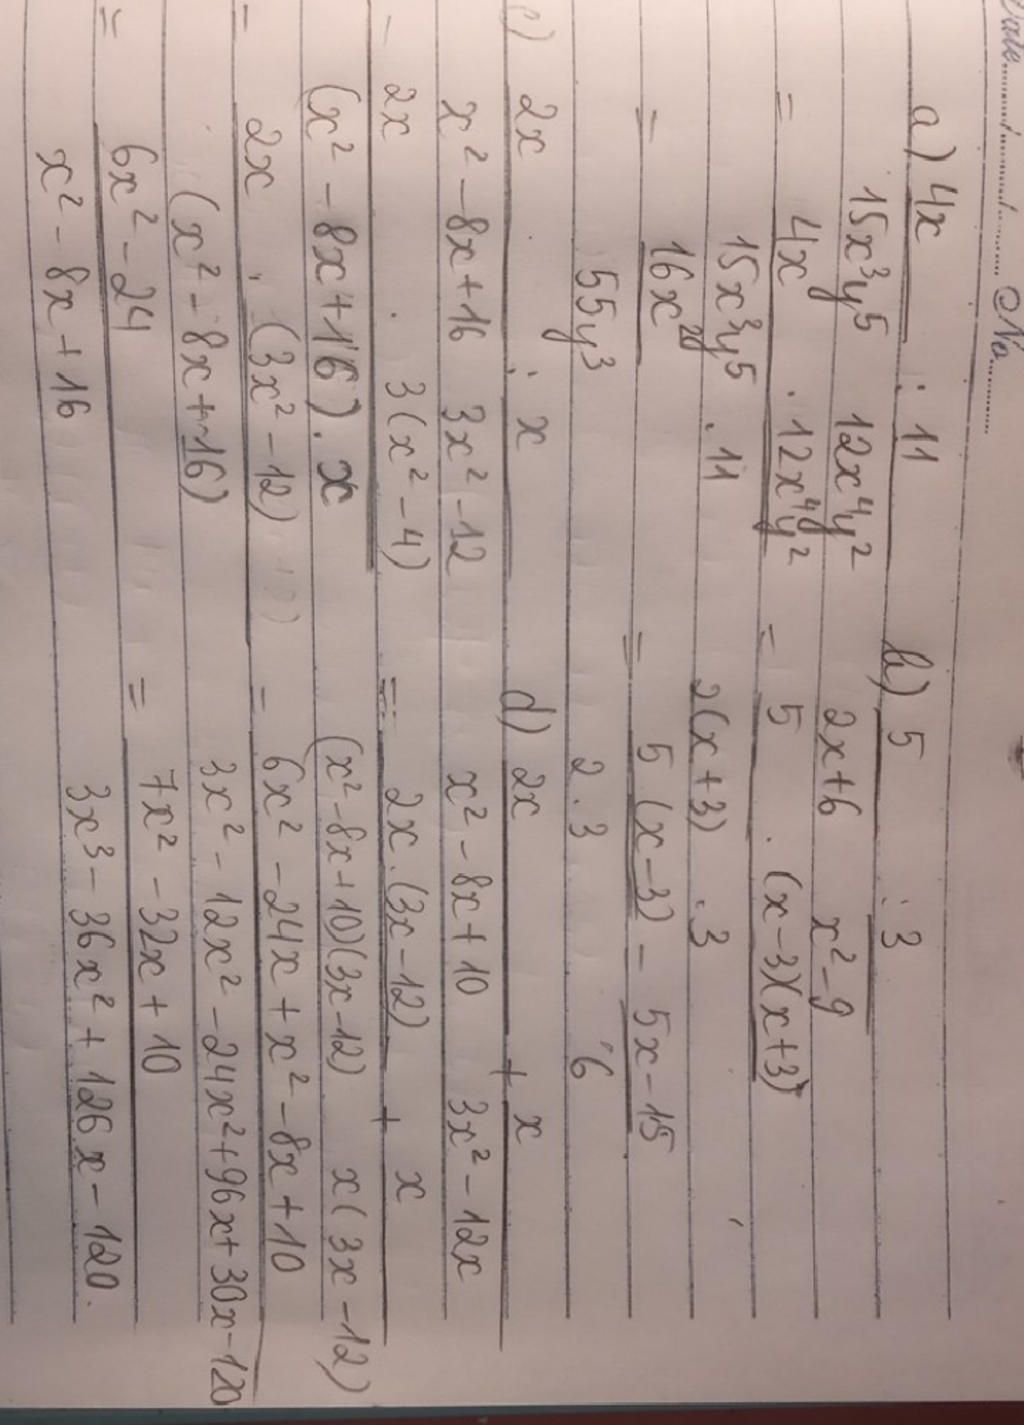 Date....../....../...... No..........
a) 4x : 11
15x³y⁵ 12x⁴y²
= 4x . 12x⁴y²
15x³y⁵ . 11
= 16x²
55y³
b) 5 : 3
2x+6 x²-9
= 5 . (x-3)(x+3)
2(x+3) .3
= 5(x-3) - 5x-15
2.3 6
c) 2x : x
x²-8x+16 3x²-12
- 2x . 3(x²-4)
(x²-8x+16).x
= 2x . (3x²-12)
(x²-8x+16)
= 6x²-24
x²-8x+16
d) 2x + x
x²-8x+10 3x²-12x
= 2x.(3x-12) + x
(x²-8x+10)(3x-12) x(3x-12)
- 6x²-24x+x²-8x+10
3x²-12x²-24x²+96x+30x-120
= 7x²-32x+10
3x³-36x²+126x-120.